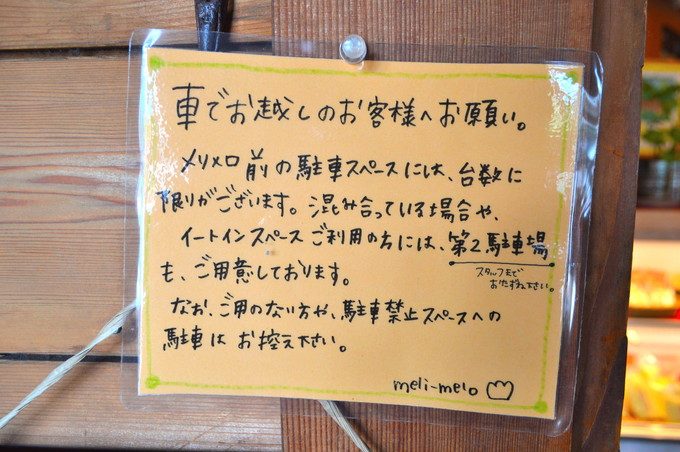 車でお越しのお客様へお願い。
メリメロ前の駐車スペースには、台数に
限りがございます。混み合っている場合や、
イートインスペースご利用の方には、第2駐車場
スタッフまで
おたずね下さい。
も、ご用意しております。
なお、ご用のない方や、駐車禁止スペースへの
駐車はお控え下さい。
meli-melo